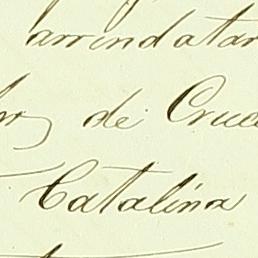 arrendatar
de Cruce
Catalina